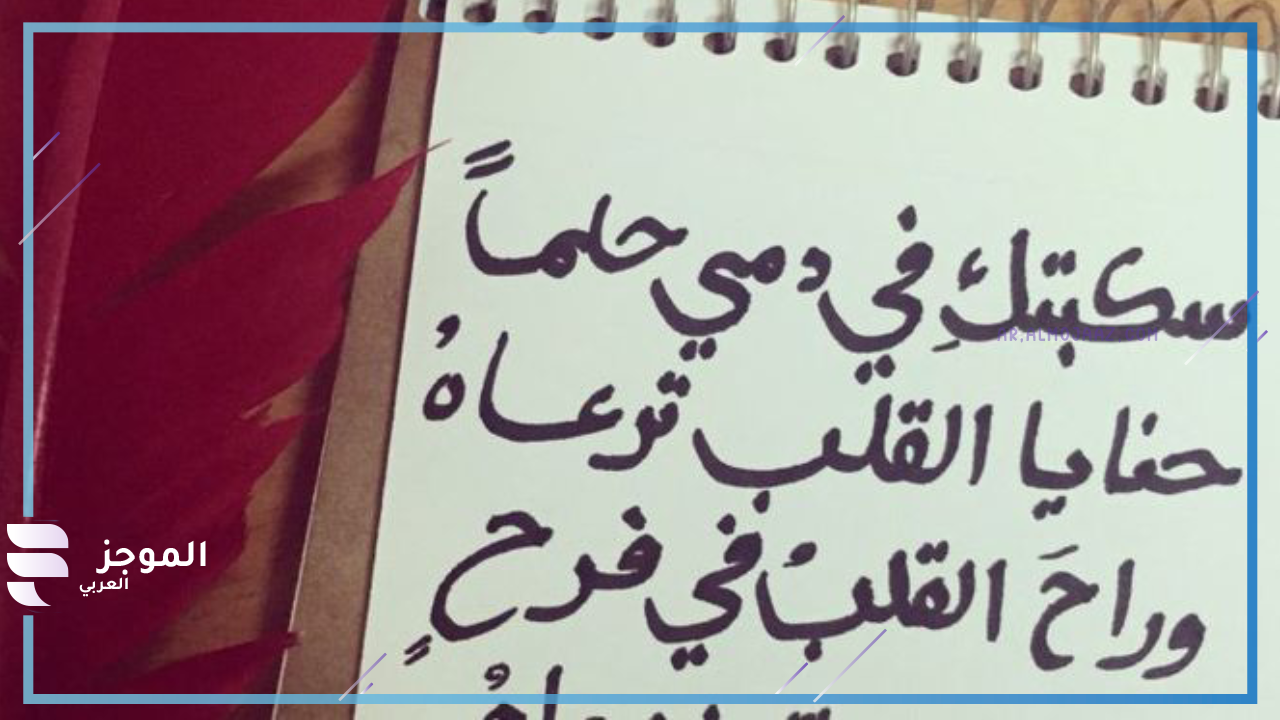 سكبتكِ في دمي حلماً
حنايا القلب ترعاهُ
وراحَ القلبُ في فرحٍ
الموجز
العربي